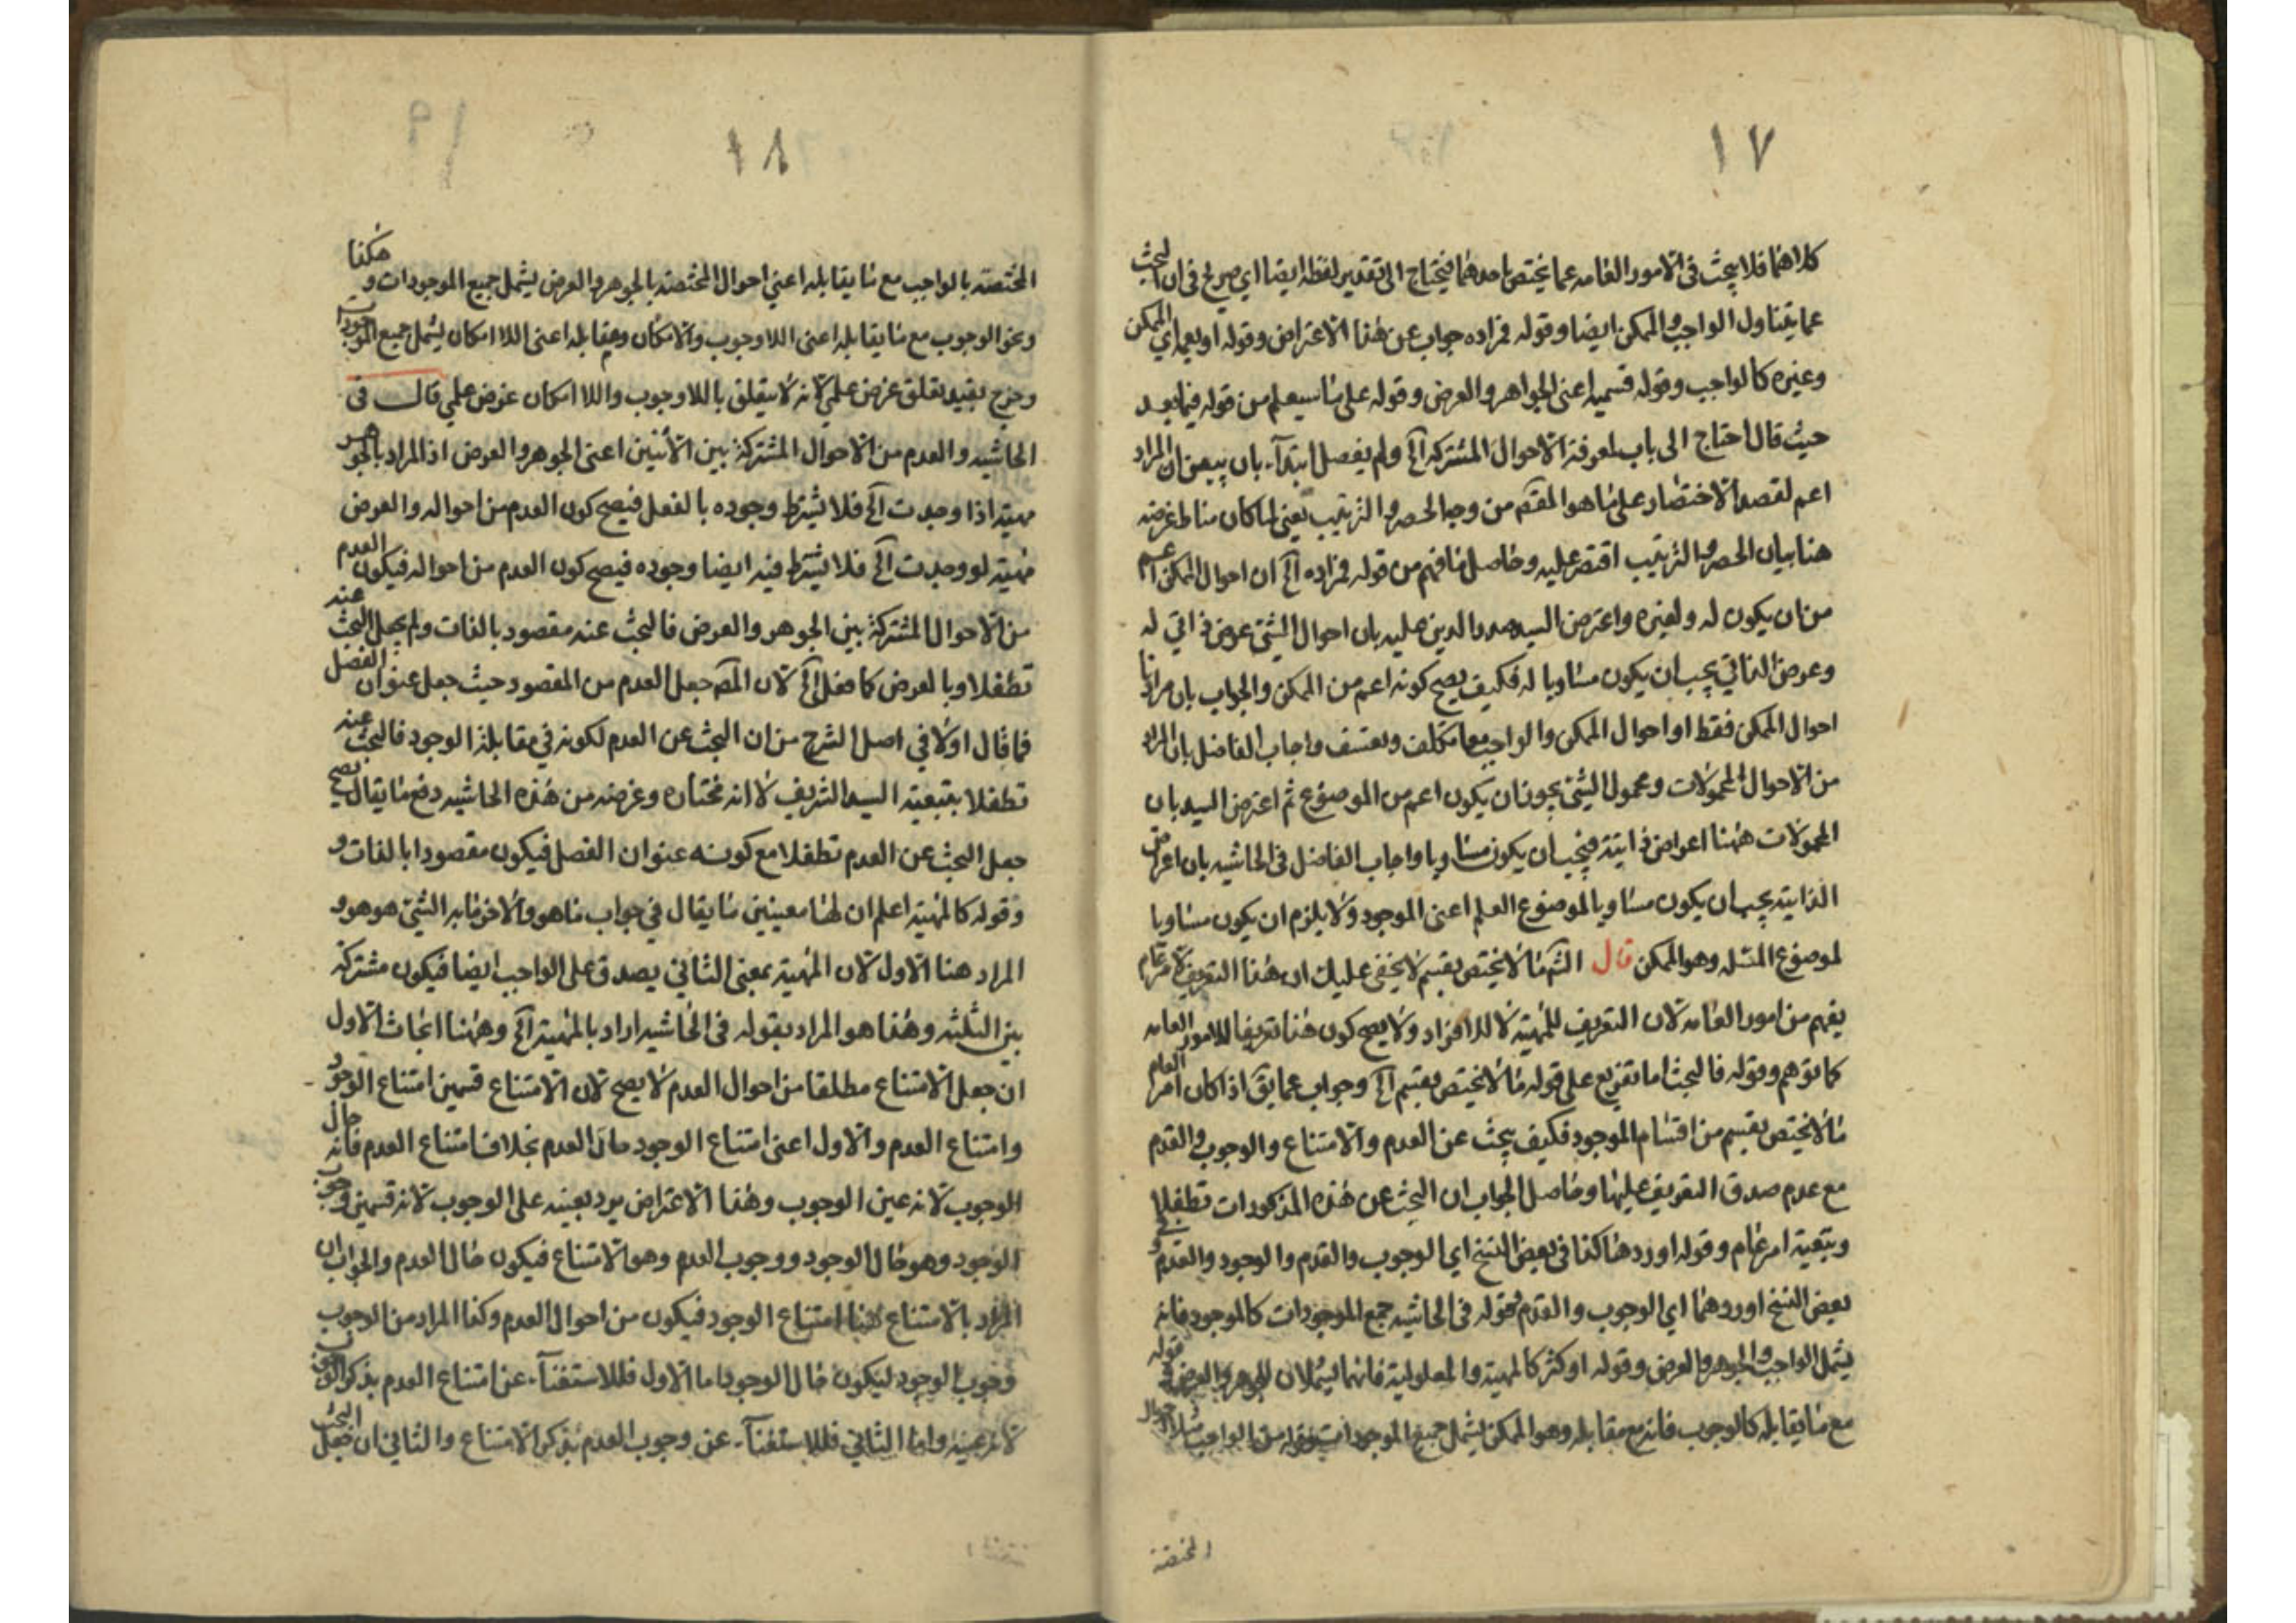 ١٧
كلاهما فلا يبحث فى الامور العامه عما يختص باحدهما فيحتاج الى تقدير لفظة ايضا اي صريح فى ان البحث
عما يتناول الواجب والممكن ايضا وقوله فمراده جواب عن هذا الاعتراض وقوله او يعم اي الممكن
وغيره كالواجب وقوله قسميه اعنى الجواهر والعرض وقوله على ما سيعلم من قوله فيما بعد
حيث قال احتاج الى باب لمعرفة الاحوال المشتركه الخ ولم يفصل ابتدآء بان يبين ان المراد
اعم لقصد الاختصار على ما هو المقدم من وجه الحصر والترتيب يعنى لما كان مناط غرضه
هنا بيان الحصر والترتيب اقتصر عليه وحاصل ما فهم من قوله فمراده الخ ان احوال الممكن اعم
من ان يكون له ولغيره واعترض السيد صدر الدين عليه بان احوال الشئ عرض ذاتي له
وعرض الذاتي يجب ان يكون مساويا له فكيف يصح كونه اعم من الممكن والجواب بان مراده انا
احوال الممكن فقط او احوال الممكن والواجب معا تكلف وتعسف واجاب الفاضل بان المراد
من الاحوال المحمولات ومحمول الشئ يجوز ان يكون اعم من الموضوع ثم اعترض السيد بان
المحمولات ههنا اعراض ذاتية فيجب ان يكون مساويا واجاب الفاضل فى الحاشيه بان اعراض
الذاتية يجب ان يكون مساويا لموضوع العلم اعنى الموجود ولا يلزم ان يكون مساويا
لموضوع المسئله وهو الممكن قال الشم ما لا يختص بقسم لا يخفى عليك ان هذا التعريف لامر عام
يفهم من امور العامه لان التعريف للمهية لا للافراد ولا يصح كون هذا تعريفا للامور العامه
كما توهم وقوله فالبحث اما تفريع على قوله ما لا يختص بقسم الخ وجواب عما يق اذا كان امر العام
ما لا يختص بقسم من اقسام الموجود فكيف يبحث عن العدم والامتناع والوجوب والقدم
مع عدم صدق التعريف عليها وحاصل الجواب ان البحث عن هذه المذكورات تطفلا
وبتبعية امر عام وقوله اوردها كذا فى بعض النسخ اي الوجوب والقدم والوجود والعدم وفى
بعض النسخ اوردهما اي الوجوب والقدم قوله فى الحاشيه جمع الموجودات كالموجود فانه
يشمل الواجب والجوهر والعرض وقوله او كثر كالمهية والمعلولية فانهما يشملان للجوهر والعرض وقوله
مع ما يقابله كالوجوب فانه مع مقابله وهو الممكن يشمل جميع الموجودات وقوله من الواجب مثلا احوال
المختصة
١٨
هكذا
المختصة بالواجب مع ما يقابله اعني احوال المختصة بالجوهر والعرض يشمل جميع الموجودات و
ونحو الوجوب مع ما يقابله اعنى اللاوجوب والامكان ومقابله اعنى اللاامكان يشمل جميع الموجودات
وخرج بقيد تعلق غرض علمي لانه لا يتعلق باللاوجوب واللاامكان غرض علمي قال فى
الحاشيه والعدم من الاحوال المشتركة بين الاثنين اعنى الجوهر والعرض اذ المراد بالجوهر
مهية اذا وجدت الخ فلا يشترط وجوده بالفعل فيصح كون العدم من احواله والعرض
مهية لو وجدت الخ فلا يشترط فيه ايضا وجوده فيصح كون العدم من احواله فيكون العدم
من الاحوال المشتركة بين الجوهر والعرض فالبحث عنه مقصود بالذات ولم يجعل البحث عنه
تطفلا وبالعرض كما فعل الخ لان المص جعل العدم من المقصود حيث جعل عنوان الفصل
فما قال اولا في اصل الشرح من ان البحث عن العدم لكونه في مقابلة الوجود فالبحث عنه
تطفلا بتبعية السيد الشريف لا انه مختاره وغرضه من هذه الحاشيه دفع ما يقال يصح
جعل البحث عن العدم تطفلا مع كونه عنوان الفصل فيكون مقصودا بالذات و
وقوله كالمهية اعلم ان لها معنيين ما يقال في جواب ما هو والاخر ما به الشئ هو هو و
المراد هنا الاول لان المهية بمعنى الثاني يصدق على الواجب ايضا فيكون مشتركة
بين الثلثه وهذا هو المراد بقوله فى الحاشيه اراد بالمهية الخ وههنا ابحاث الاول
ان جعل الامتناع مطلقا من احوال العدم لا يصح لان الامتناع قسمين امتناع الوجود
وامتناع العدم والاول اعنى امتناع الوجود حال العدم بخلاف امتناع العدم فانه حال
الوجوب لانه عين الوجوب وهذا الاعتراض يرد بعينه على الوجوب لانه قسمين وجوب
الوجود وهو حال الوجود ووجوب العدم وهو الامتناع فيكون حال العدم والجواب ان
المراد بالامتناع هنا امتناع الوجود فيكون من احوال العدم وكذا المراد من الوجوب
وجوب الوجود ليكون حال الوجود اما الاول فللاستغنآء عن امتناع العدم بذكر الوجوب
لانه عينه واما الثاني فللاستغنآء عن وجوب العدم بذكر الامتناع والثاني ان جعل البحث